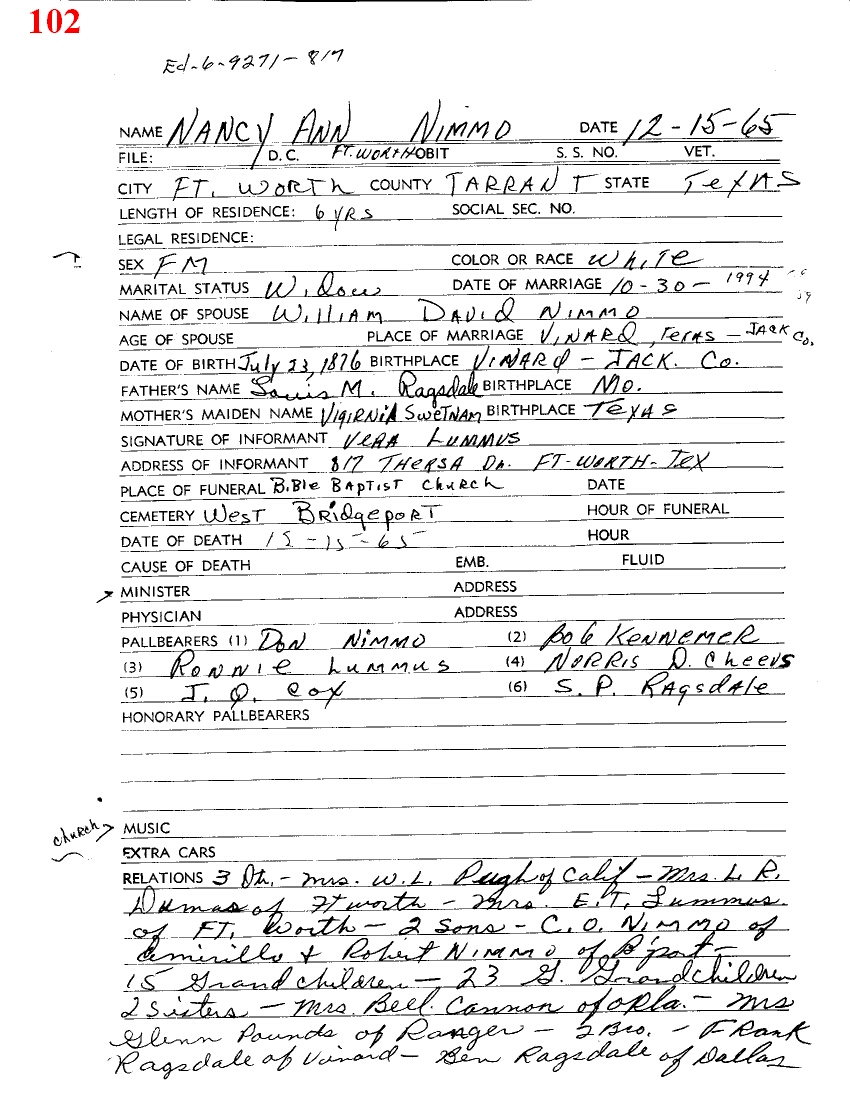 102
Ed-6-9271- 817
NAME NANCY ANN NIMMO DATE 12-15-65
FILE: D.C. FT. WORTH OBIT S. S. NO. VET.
CITY FT. WORTH COUNTY TARRANT STATE TEXAS
LENGTH OF RESIDENCE: 6 YRS SOCIAL SEC. NO.
LEGAL RESIDENCE:
SEX FM COLOR OR RACE WHITE
MARITAL STATUS Widow DATE OF MARRIAGE 10-30- 1994
NAME OF SPOUSE WILLIAM DAVID NIMMO
AGE OF SPOUSE PLACE OF MARRIAGE VINARD, TEXAS - JACK Co.
DATE OF BIRTH July 23, 1876 BIRTHPLACE VINARD - JACK. Co.
FATHER'S NAME Louis M. Ragsdale BIRTHPLACE MO.
MOTHER'S MAIDEN NAME VIGIRNIA SWETNAM BIRTHPLACE TEXAS
SIGNATURE OF INFORMANT VERA LUMMUS
ADDRESS OF INFORMANT 817 THERSA DR. FT-WORTH-TEX
PLACE OF FUNERAL BIBLE BAPTIST CHURCH DATE
CEMETERY WEST BRIDGEPORT HOUR OF FUNERAL
DATE OF DEATH 15-15-65 HOUR
CAUSE OF DEATH EMB. FLUID
MINISTER ADDRESS
PHYSICIAN ADDRESS
PALLBEARERS (1) DON NIMMO (2) BOB KENNEMER
(3) RONNIE LUMMUS (4) NORRIS D. CHEEVS
(5) J. Q. COX (6) S. P. RAGSDALE
HONORARY PALLBEARERS
church MUSIC
EXTRA CARS
RELATIONS 3 Dth. - Mrs. W. L. Pugh of Calif - Mrs. L. R.
Dumas of Ft worth - Mrs. E. T. Lummus
of FT. Worth - 2 Sons - C. O. NIMMO of
Amirillo & Robert NIMMO of B'port -
15 Grandchildren - 23 G. Grandchildren
2 Sisters - Mrs. Bell. Cannon of Okla. - Mrs
Glenn Pounds of Ranger - 2 Bro. - FRank
Ragsdale of Vinard - Ben Ragsdale of Dallas